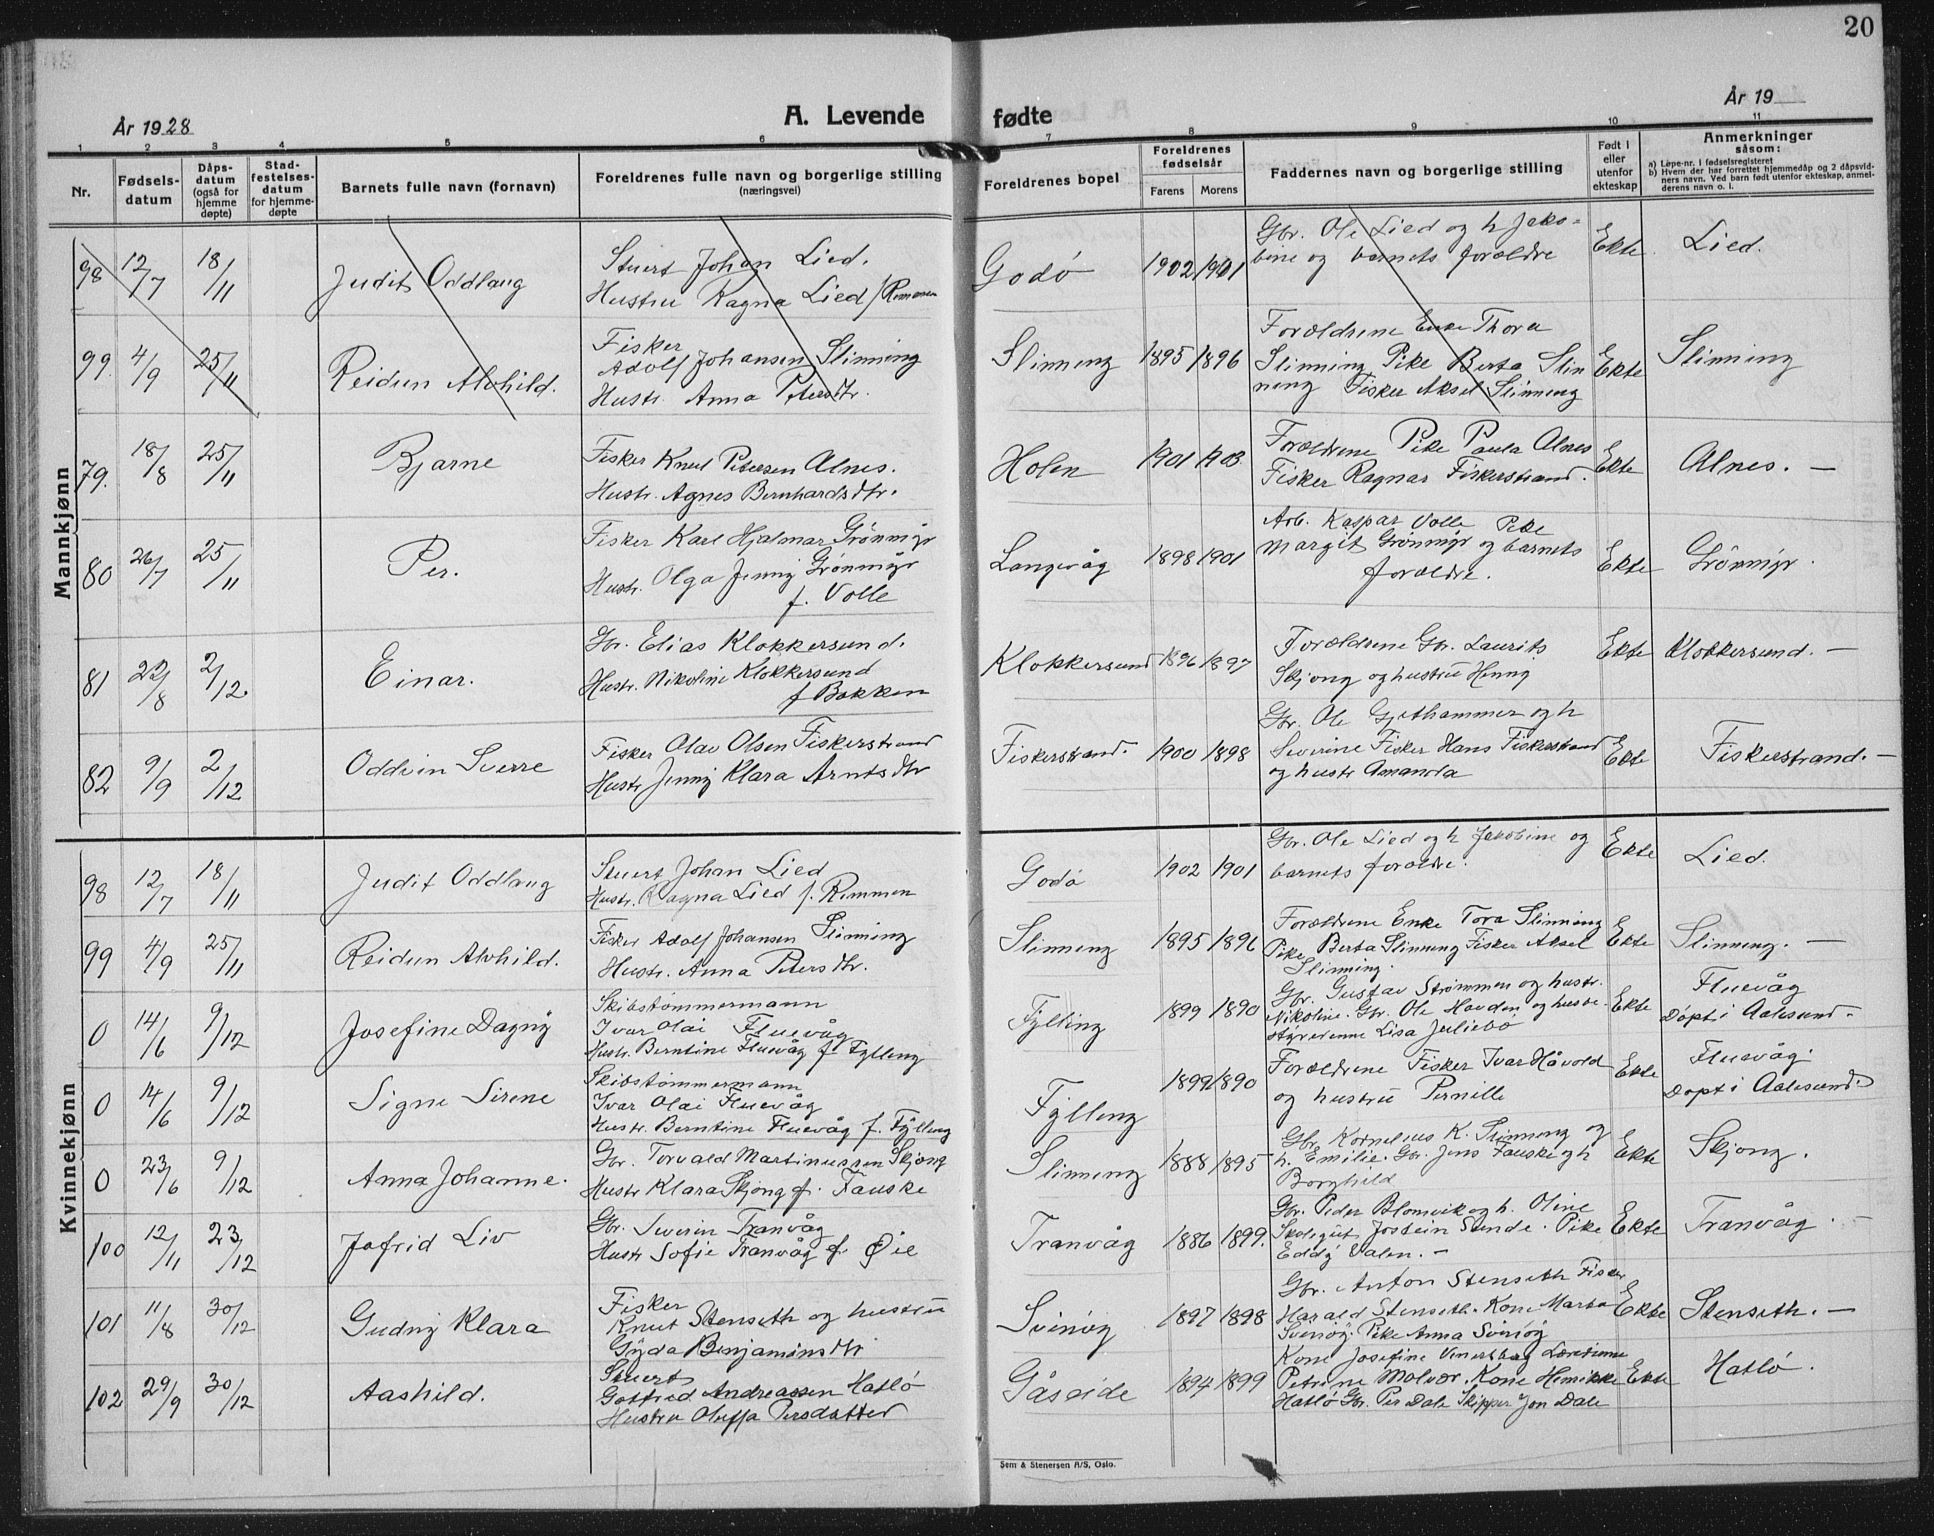 20
År 1928
A. Levende fødte
År 19
1 2 3 4 5 6 7 8 9 10 11
Nr.
Fødsels-
datum
Dåps-
datum
(også for
hjemme
døpte)
Stad-
festelses-
datum
for hjemme-
døpte
Barnets fulle navn (fornavn)
Foreldrenes fulle navn og borgerlige stilling
(næringsvei)
Foreldrenes bopel
Foreldrenes
fødselsår
Farens Morens
Faddernes navn og borgerlige stilling
Født i
eller
utenfor
ekteskap
Anmerkninger
såsom:
a) Løpe-nr. i fødselsregisteret
b) Hvem der har forrettet hjemmedåp og 2 dåpsvid-
ners navn. Ved barn født utenfor ekteskap, anmel-
derens navn o. l.
Mannkjønn
98 12/7 18/11 Judit Oddlaug
Stuert Johan Lied.
Hustru Ragna Lied f Remmen
Godö 1902 1901
Gbr. Ole Lied og h Jeko-
bine og barnets forældre
Ekte Lied.
99. 4/9 25/11 Reidun Alvhild.
Fisker
Adolf Johansen Slinning
Hustr. Anna Petersdtr.
Slinning 1895 1896
Forældrene Enke Thora
Slinning Pike Berta Slin
ning Fisker Aksel Slinning
Ekte Slinning
79. 18/8 25/11 Bjarne
Fisker Knut Petersen Alnes.
Hustr. Agnes Bernhardsdtr.
Holen 1901 1903
Forældrene Pike Paula Alnes
Fisker Ragnar Fiskerstrand.
Ekte Alnes. —
80 26/7 25/11 Per.
Fisker Karl Hjalmar Grönmyr
Hustr. Olga Jenny Grönmyr
f. Volle
Langevåg 1898 1901
Arb. Kaspar Volle Pike
Margit Grönmyr og barnets
forældre.
Ekte Grönmyr.
81 22/8 2/12. Einar.
Gbr. Elias Klokkersund.
Hustr. Nikoline Klokkersund
f Bakken
Klokkersund 1896 1897
Forældrene Gbr. Laurits
Skjong og hustru Henny
Ekte Klokkersund. —
82 9/9 2/12 Oddvin Sverre
Fisker Olav Olsen Fiskerstrand
Hustr Jenny Klara Arntsdtr
Fiskerstrand. 1900 1898
Gbr. Ole Gjethammer og h
Severine Fisker Hans Fiskerstrand
og hustr Amanda
Ekte Fiskerstrand. —
Kvinnekjønn
98 12/7 18/11 Judit Oddlaug
Stuert Johan Lied
Hustr. Ragna Lied f. Remmen
Godö 1902 1901
Gbr. Ole Lied og h Jekobine og
barnets forældre.
Ekte Lied.
99 4/9 25/11 Reidun Alvhild.
Fisker Adolf Johansen Slinning
Hustr. Anna Petersdtr.
Slinning 1895 1896
Forældrene Enke Tora Slinning
Pike Berta Slinning Fisker Aksel
Slinning.
Ekte Slinning. —
0 14/6 9/12 Josefine Dagny
Skibstömmermann
Ivar Olai Fluevåg
Hustr. Berntine Fluevåg f. Fylling
Fylling 1899 1890
Gbr. Gustav Strömmen og hustr.
Nikoline. Gbr. Ole Hovden og husbe-
styrerinne Lisa Juliebö
Ekte Fluevåg
Döpt i Aalesund.
0 14/6 9/12 Signe Sirene
Skibstömmermann
Ivar Olai Fluevåg
Hustr. Berntine Fluevåg f. Fylling
Fylling 1899 1890
Forældrene Fisker Ivar Håvold
og hustru Pernille
Ekte Fluevåg.
Döpt i Aalesund.
0 23/6 9/12 Anna Johanne.
Gbr. Torvald Martinussen Skjong
Hustr Klara Skjong f. Fauske
Slinning 1888 1895
Gbr Kornelius K. Slinning og
h. Emilie. Gbr. Jens Fauske og h
Borghild
Ekte Skjong.
100 12/11 23/12 Jofrid Liv
Gbr. Severin Tranvåg
Hustr Sofie Tranvåg f. Øie
Tranvåg 1886 1899.
Gbr. Peder Blomvik og h. Oline
Skolegut Jostein Sunde. Pike
Eddy Valen. —
Ekte Tranvåg. —
101 11/8 30/12 Gudny Klara
Fisker
Knut Stenseth og hustru
Gyda Benjaminsdtr
Svinöy 1897 1898
Gbr. Anton Stenseth Fisker
Harald Stenseth. Kone Marta
Svinöy. Pike Anna Svinöy
Ekte Stenseth. —
102 29/9 30/12 Aashild.
Stuert
Gotfred Andreassen Hatlö
Hustru Oluffa Persdatter
Gåseide 1894 1899
Kone Josefine Lærerinne
Petrine Molvær. Kone Henrikke
Hatlö Gbr. Per Dale Skipper Jon Dale
Ekte Hatlö.
Sem & Stenersen A/S, Oslo.